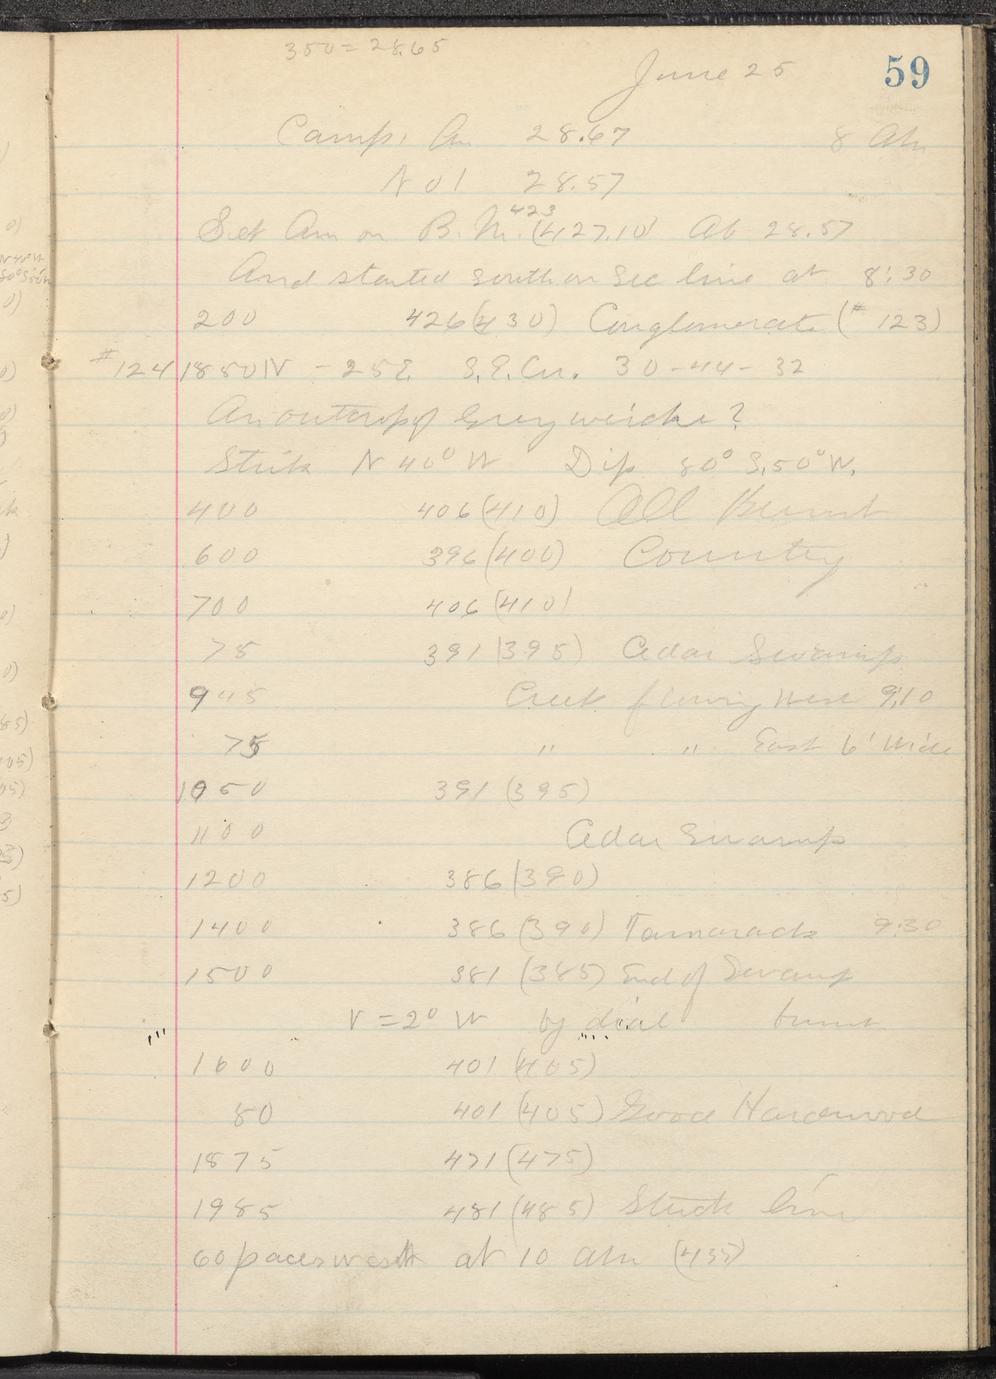 350 = 28.65
June 25
59
Camp. An 28.67 8 AM
No 1 28.57
423
Set Am on B.M. (427.10) At 28.57
And started south on Sec line at 8:30
200 426 (430) Conglomerate (# 123)
#124 1850 N - 25 E. S.E. Cr. 30-44-32
An outcrop of Greywacke?
Strik N 40° W Dip 80° S, 50° W.
400 406 (410) All Burnt
600 396 (400) Country
700 406 (410)
75 391 (395) Cedar Swamp
945 Creek flowing West 9:10
75 " " East 6' wide
1050 391 (395)
1100 Cedar Swamp
1200 386 (390)
1400 386 (390) Tamarack 9:30
1500 381 (385) End of Swamp
V = 2° W by dial burnt
1600 401 (405)
80 401 (405) Good Hardwood
1875 471 (475)
1985 481 (485) Struck line
60 paces west at 10 AM (435)